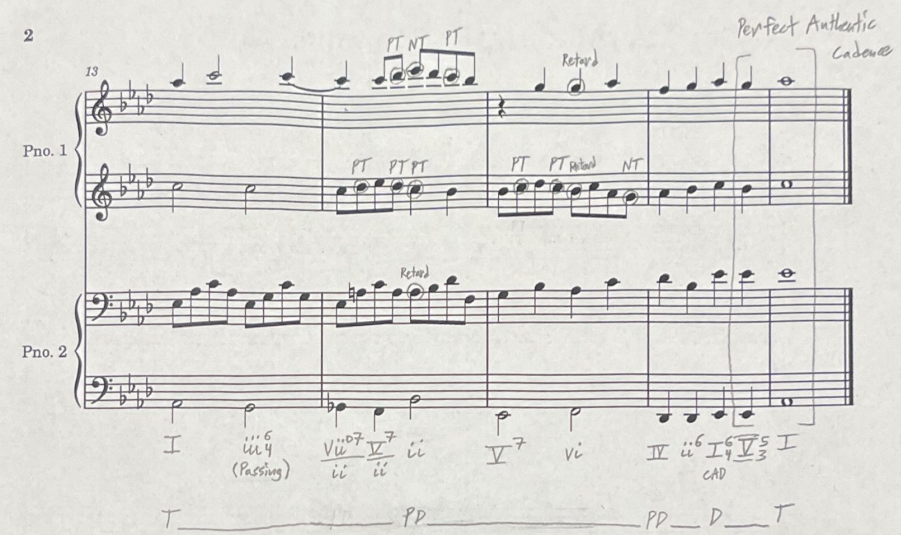 2
Perfect Authentic
Cadence
PT NT PT
Retard
13
Pno. 1
PT PT PT
PT PT Retard NT
Retard
Pno. 2
I iii6/4 Vii°7/ii V7/ii ii V7 vi IV ii6 I6/4 V5/3 I
(Passing) CAD
T PD PD D T